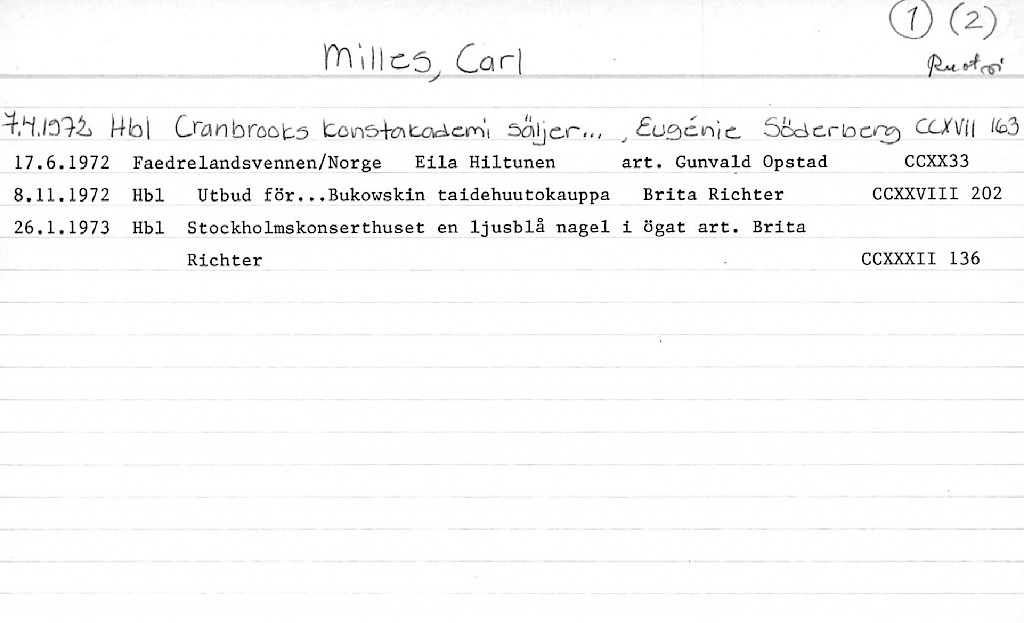 ① (2)
Milles, Carl
Ruotsi
7.4.1972 Hbl Cranbrooks konstakademi säljer... , Eugénie Söderberg CCXVII 163
17.6.1972 Faedrelandsvennen/Norge Eila Hiltunen art. Gunvald Opstad CCXX33
8.11.1972 Hbl Utbud för...Bukowskin taidehuutokauppa Brita Richter CCXXVIII 202
26.1.1973 Hbl Stockholmskonserthuset en ljusblå nagel i ögat art. Brita
Richter CCXXXII 136